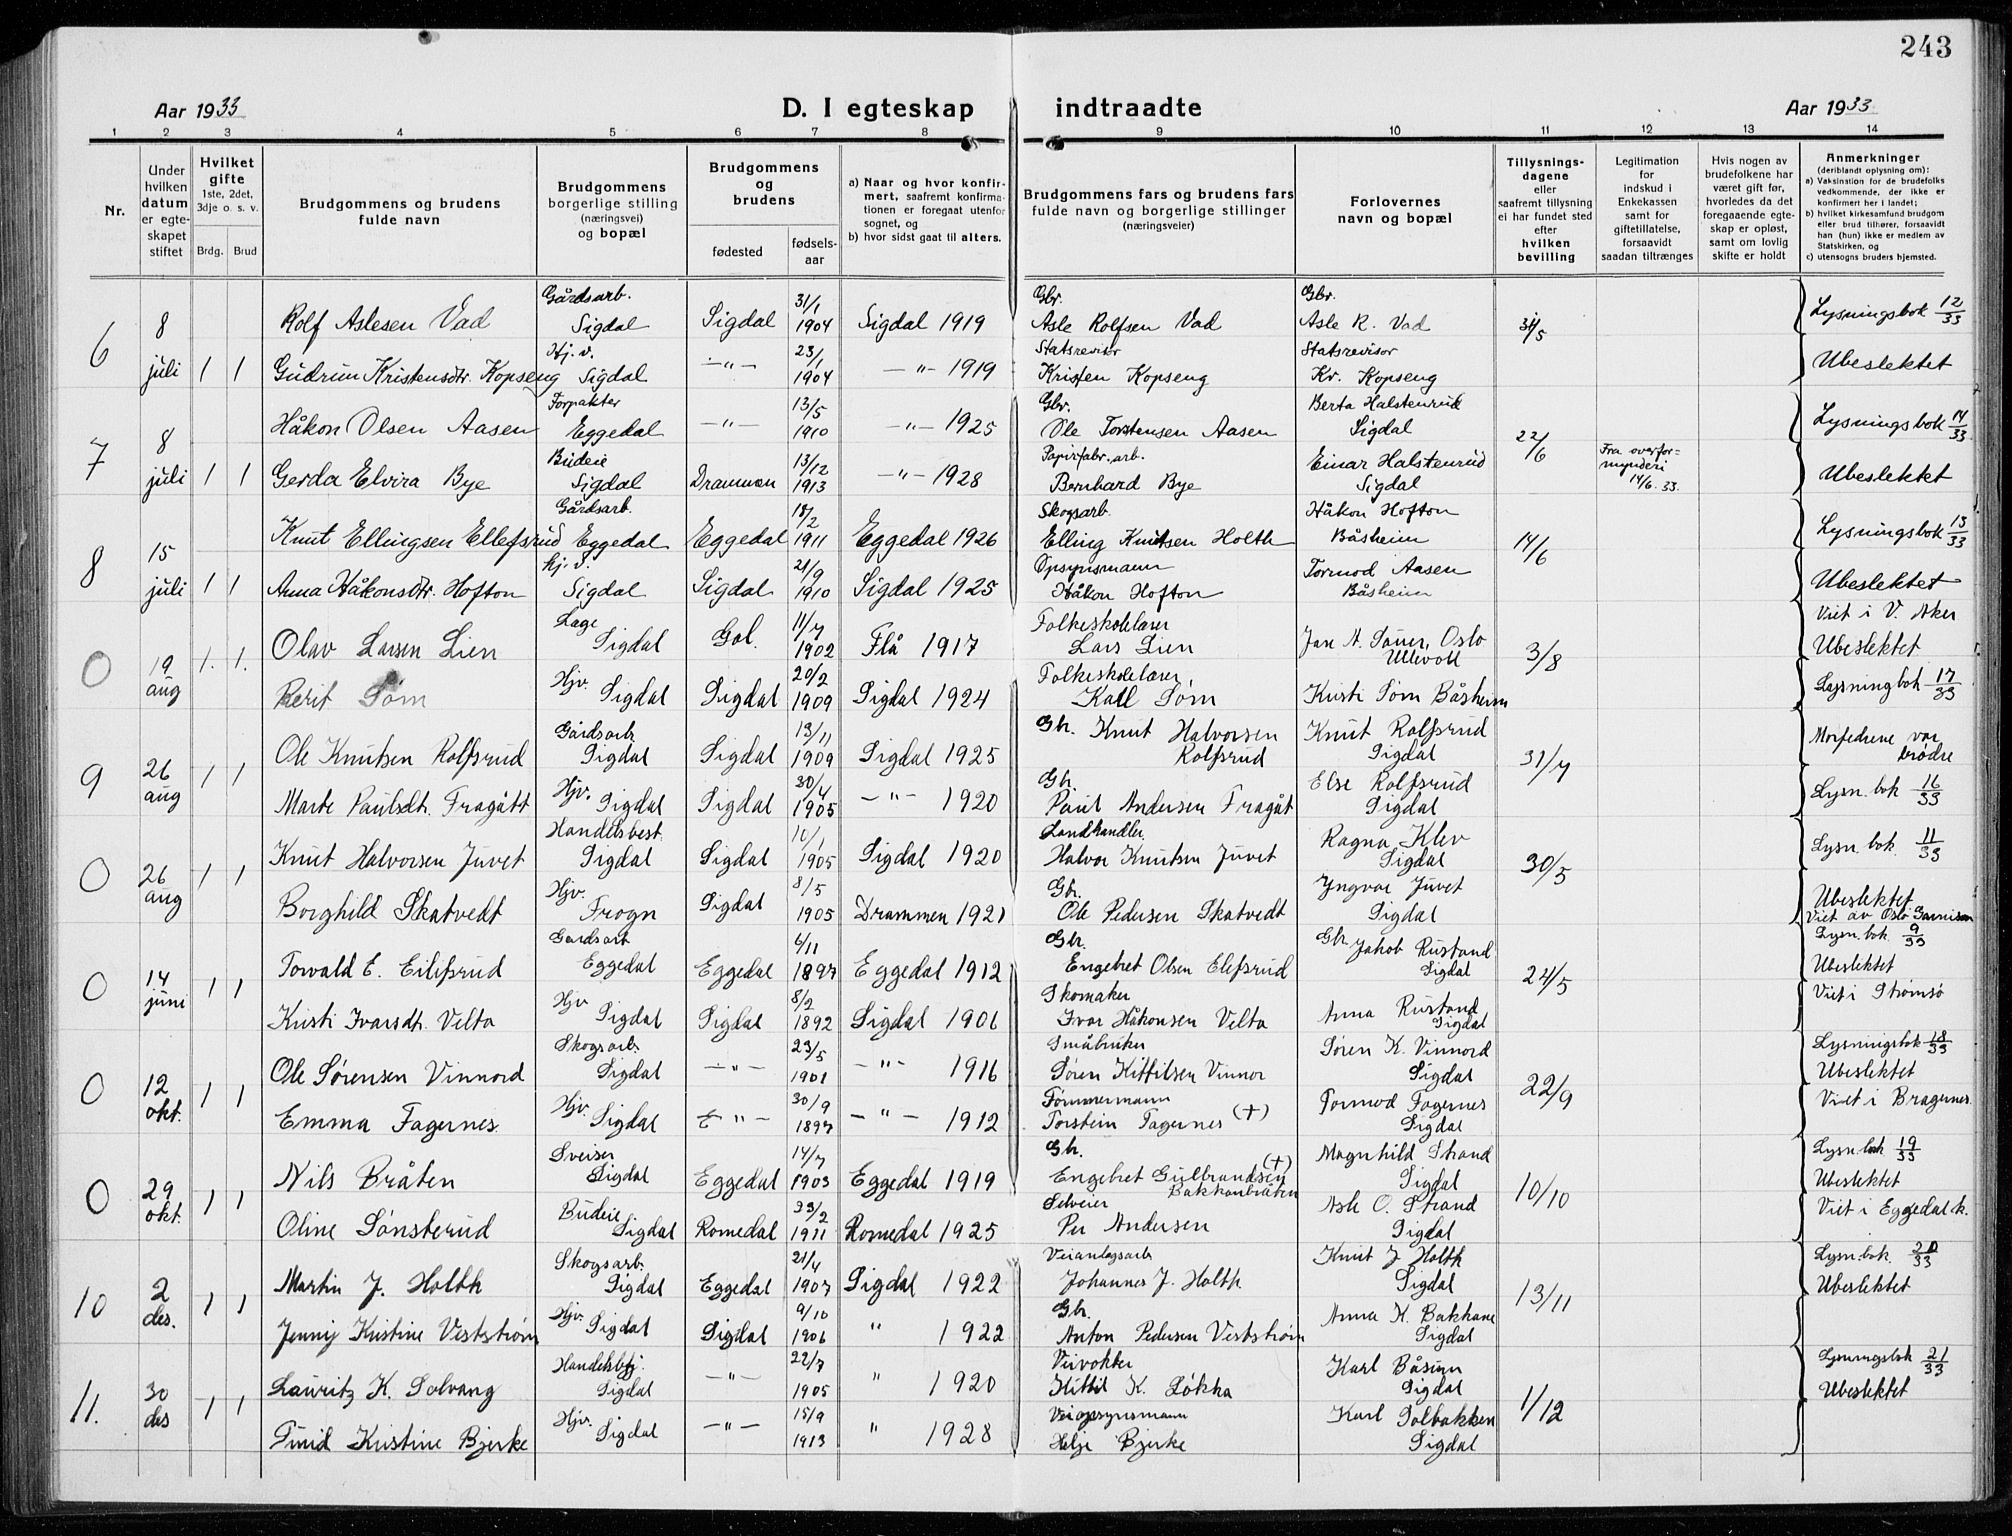 243
Aar 1933
D. I egteskap indtraadte
Aar 1933
1 2 3 4 5 6 7 8 9 10 11 12 13 14
Nr.
Under hvilken datum er egteskapet stiftet
Hvilket gifte 1ste, 2det, 3dje o. s. v.
Brdg. Brud
Brudgommens og brudens fulde navn
Brudgommens borgerlige stilling (næringsvei) og bopæl
Brudgommens og brudens
fødested
fødsels-aar
a) Naar og hvor konfirmert, saafremt konfirmationen er foregaat utenfor sognet, og
b) hvor sidst gaat til alters.
Brudgommens fars og brudens fars fulde navn og borgerlige stillinger (næringsveier)
Forlovernes navn og bopæl
Tillysningsdagene eller saafremt tillysning ei har fundet sted efter hvilken bevilling
Legitimation for indskud i Enkekassen samt for giftetillatelse, forsaavidt saadan tiltrænges
Hvis nogen av brudefolkene har været gift før, hvorledes da det foregaaende egteskap er opløst, samt om lovlig skifte er holdt
Anmerkninger (deriblandt oplysning om):
a) Vaksination for de brudefolks vedkommende, der ikke er konfirmert her i landet;
b) hvilket kirkesamfund brudgom eller brud tilhører, forsaavidt han (hun) ikke er medlem av Statskirken, og
c) utensogns bruders hjemsted.
6 8 juli 1 1
Rolf Aslesen Vad Gårdsarb. Sigdal Sigdal 31/1 1904 Sigdal 1919 Gbr. Asle Rolfsen Vad Gbr. Asle R. Vad 31/5 Lysningsbok 12/33
Gudrun Kristensdtr. Kopseng Hj. v. Sigdal -"- 23/1 1904 -"- 1919 Statsrevisor Kristen Kopseng Statsrevisor Kr. Kopseng Ubeslektet
7 8 juli 1 1
Håkon Olsen Aasen Forpakter Eggedal -"- 13/5 1910 -"- 1925 Gbr. Ole Torstensen Aasen Berta Halstenrud Sigdal 22/6 Lysningsbok 14/33
Gerda Elvira Bye Budeie Sigdal Drammen 13/12 1913 -"- 1928 Papirfabr. arb. Bernhard Bye Einar Halstenrud Sigdal Fra overformynderi 14/6. 33. Ubeslektet
8 15 juli 1 1
Knut Ellingsen Ellefsrud Gårdsarb. Eggedal Eggedal 18/2 1911 Eggedal 1926 Skogsarb. Elling Knutsen Holth Håkon Hofton Båsheim 14/6 Lysningsbok 13/33
Anna Håkonsdtr. Hofton hj. v. Sigdal Sigdal 21/9 1910 Sigdal 1925 Opsynsmann Håkon Hofton Tormod Aasen Båsheim Ubeslektet
0 19 aug 1. 1.
Olav Larsen Lien Læge Sigdal Gol. 11/7 1902 Flå 1917 Folkeskolelærer Lars Lien Oslo Ullevoll 3/8 Viet i V. Aker Ubeslektet
Berit Søm Hjv. Sigdal Sigdal 20/2 1909 Sigdal 1924 Folkeskolelærer Søm Kristi Søm Båsheim Lysningbok 17/33
9 26 aug 1 1
Ole Knutsen Rolfsrud Gårdsarb Sigdal Sigdal 13/11 1909 Sigdal 1925 Gbr. Knut Halvorsen Rolfsrud Knut Rolfsrud Sigdal 31/7 Morfedrene var brødre
Marte Paulsdt. Fragått Hjv. Sigdal Sigdal 30/4 1905 -"- 1920 Gbr. Paul Andersen Fragåt Else Rolfsrud Sigdal Lysn. bok 16/33
0 26 aug 1 1
Knut Halvorsen Juvet Handelsbest. Sigdal Sigdal 10/1 1905 Sigdal 1920 Landhandler. Halvor Knutsen Juvet Ragna Klev Sigdal 30/5 Lysn. bok. 11/33
Borghild Skatvedt Hjv. Frogn Sigdal 8/5 1905 Drammen 1921 Gbr. Ole Pedersen Skatvedt Yngvar Juvet Sigdal Ubeslektet Viet av Oslo Garnison
0 14 juni 1 1
Torvald E. Eilefsrud Gardsarb Eggedal Eggedal 6/11 1897 Eggedal 1912 Gbr. Engebret Olsen Elefsrud Gbr. Jakob Rustand Sigdal 24/5 Lysn. bok 9/33 Ubeslektet
Kristi Ivarsdt. Velta Hjv Sigdal Sigdal 8/2 1892 Sigdal 1906 Skomaker Ivar Håkonsen Velta Anna Rustand Sigdal Viet i Strømsø
0 12 okt. 1 1
Ole Sørensen Vinnord Skogsarb. Sigdal -"- 23/5 1901 -"- 1916 Småbruker Søren Kittilsen Vinnor Søren K. Vinnord Sigdal 22/9 Lysningsbok 18/33 Ubeslektet
Emma Fagernes. Hjv. Sigdal -"- 30/9 1897 -"- 1912 Tømmermann Torstein Fagernes (+) Tormod Fagernes Sigdal Viet i Bragernes.
0 29 okt. 1 1
Nils Bråten Sveiser Sigdal Eggedal 14/7 1903 Eggedal 1919 Gbr. Engebret Gulbrandsen (+) Bakkanbråten Magnhild Strand Sigdal 10/10 Lysn. bok 19/33 Ubeslektet
Oline Sønsterud Budeie Sigdal Romedal 23/2 1911 Romedal 1925 Selveier Per Andersen Asle O. Strand Sigdal Viet i Eggedal k.
10 2 des. 1 1
Martin J. Holth Skogsarb. Sigdal Eggedal 21/4 1907 Sigdal 1922 Veianlegsarb Johannes J. Holth Knut J Holth Sigdal 13/11 Lysn. bok. 20/33 Ubeslektet
Jenny Kristine Vestström Hjv. Sigdal Sigdal 9/10 1906 " 1922 Gbr. Anton Pedersen Vestström Anna K. Bakkane Sigdal
11. 30 des 1 1
Lauritz K. Solvang Handelsbtj. Sigdal -"- 22/7 1905 " 1920 Veivokter Kittil K. Løkka Karl Båsum Sigdal 1/12 Lysningsbok 21/33 Ubeslektet
Turid Kristine Bjerke Hjv. Sigdal -"- 15/9 1913 " 1928 Veiopsynsmann Helge Bjerke Karl Solbakken Sigdal